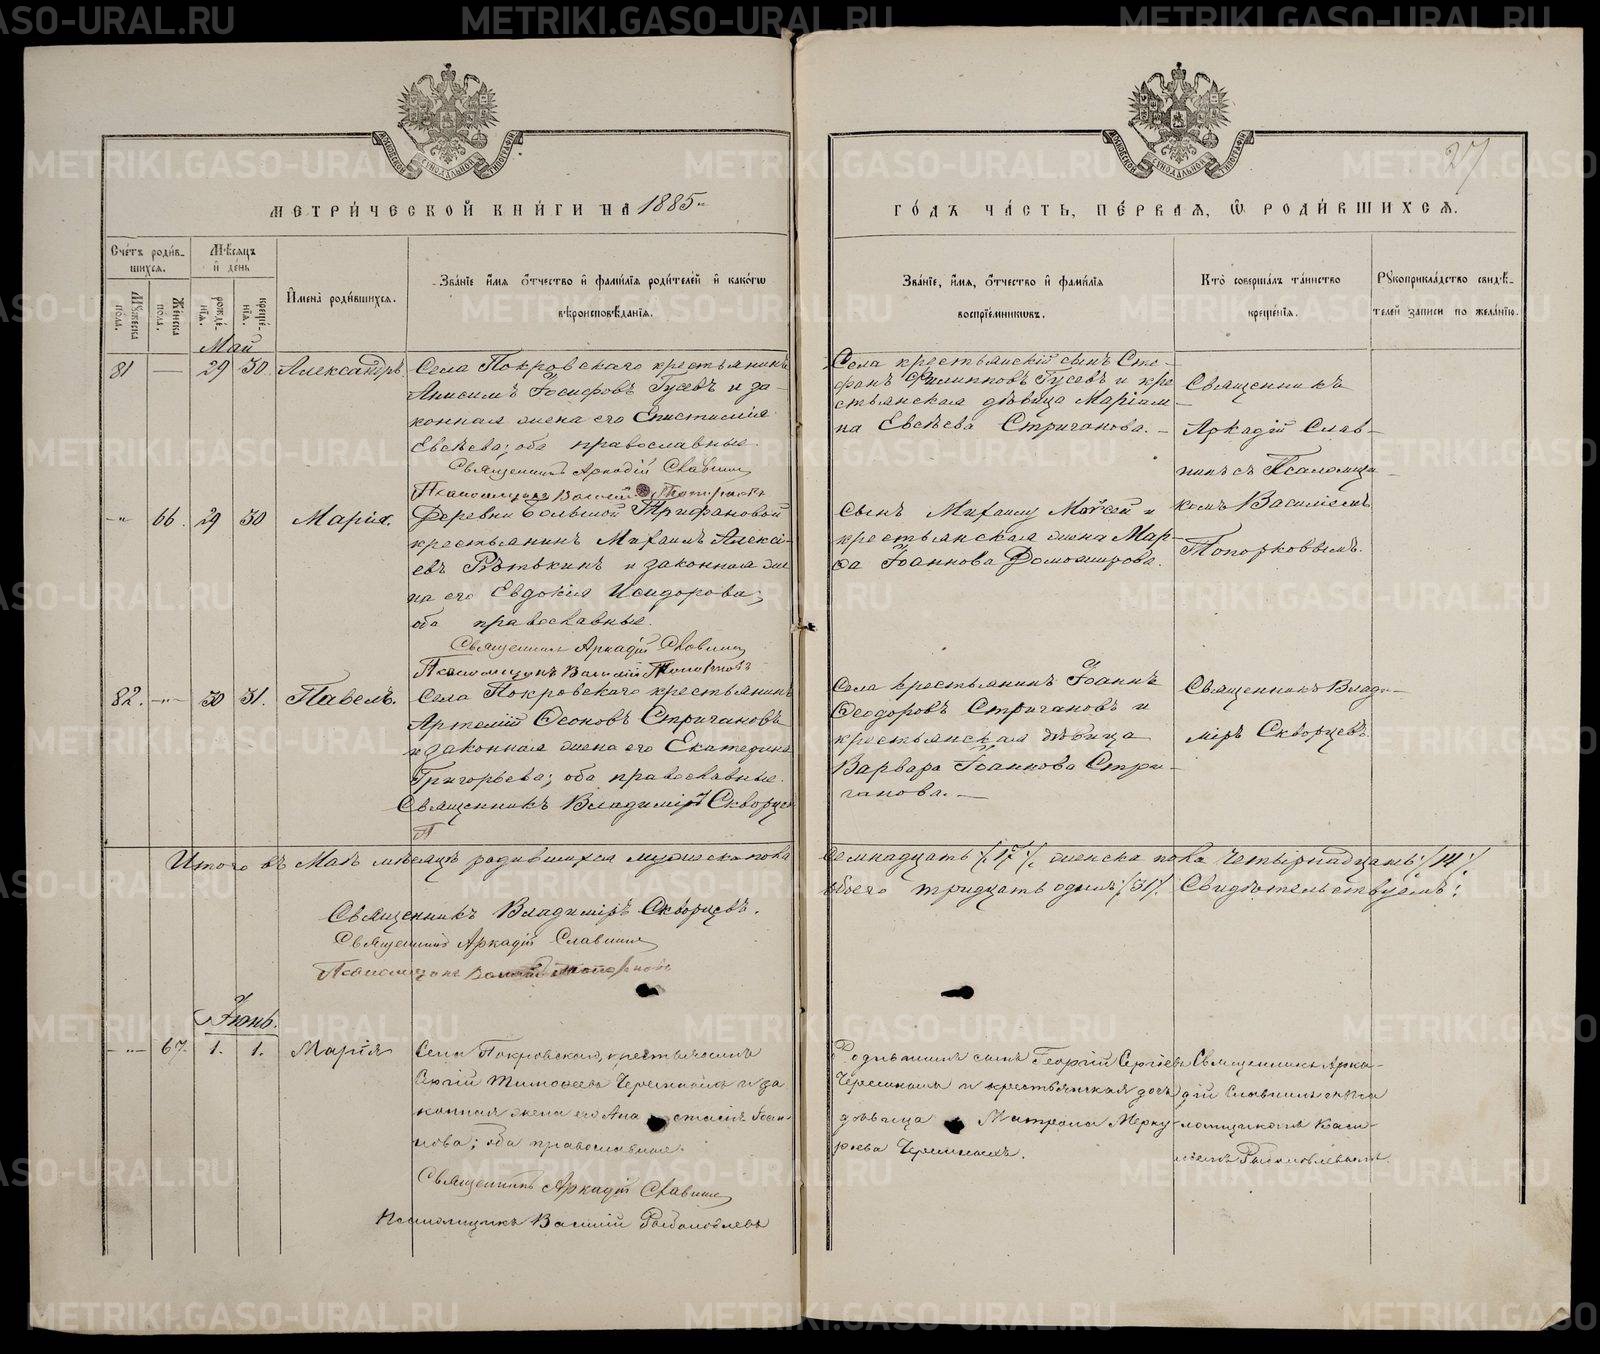 МЕТРИ́ЧЕСКОЙ КНИ́ГИ НА 1885й
ГО́ДЪ ЧА́СТЬ, ПЕ́РВАЯ, Ѿ РОДИ́ВШИХСЯ.
27
Сче́тъ роди́вшихся.
Мѣ́сяцъ и҆ день
Мꙋ́жеска по́ла.
Же́нска по́ла.
рожде́нїя.
креще́нїя.
И҆мена̀ роди́вшихся.
Зва́нїе и҆́мя ѻ҆́тчество и҆ фами́лїя роди́телей и҆ како́гѡ
вѣроисповѣ́данїя.
Зва́нїе, и҆́мя, ѻ҆́тчество и҆ фами́лїя
воспрїе́мникѡвъ.
Кто̀ соверша́лъ та́инство
креще́нїя.
Рꙋкоприкла́дство свидѣ́телей за́писи по жела́нїю.
Май
81 — 29 30 Александръ
Села Покровскаго крестьянинъ
Анисимъ Іосифовъ Гусевъ и за-
конная жена его Епистимія
Евсѣева; оба православные.
Священникъ Аркадій Славнинъ
Псаломщикъ Василій Топорковъ
Села крестьянскій сынъ Сте-
фанъ Филипповъ Гусевъ и кре
стьянская дѣвица Маріам-
на Евсѣева Стриганова.
Священникъ
Аркадій Слав-
нинъ съ Псаломщи-
комъ Василіемъ
Топорковымъ.
—„— 66. 29 30 Марія.
Деревни Большой Трифановой
крестьянинъ Михаилъ Алексѣ-
евъ Рѣтькинъ и законная же
на его Евдокія Исидорова;
оба православные.
Священникъ Аркадій Славнинъ
Псаломщикъ Василій Топорковъ
Сынъ Михаилу Мойсей и
крестьянская жена Мар-
ѳа Іоаннова Доможирова.
82. —„— 30 31. Павелъ.
Села Покровскаго крестьянинъ
Артемій Ѳеоновъ Стригановъ
и законная жена его Екатерина
Григорьева; оба православные.
Священникъ Владиміръ Скворцев
П
Села крестьянинъ Іоаннъ
Ѳеодоровъ Стригановъ и
крестьянская дѣвица
Варвара Іоаннова Стри-
ганова. —
Священникъ Влади-
міръ Скворцевъ
Итого въ Маѣ мѣсяцѣ родившихся мужеска пола
семнадцать /17/. женска пола четырнадцать /14/
обоего тридцать одинъ /31/. Свидѣтельствуемъ:
Священникъ Владиміръ Скворцевъ.
Священникъ Аркадій Славнинъ
Псаломщикъ Василій Топорковъ
Іюнь.
—„— 67. 1. 1. Марія
Села Покровскаго, крестьянинъ
Сергій Тимоѳеевъ Черемныхъ и за
конная жена его Анастасія Іоан-
нова; оба православные.
Священникъ Аркадій Славнинъ
Псаломщикъ Василій Рыболовлевъ
Родившимъ сынъ Георгій Сергіевъ
Черемныхъ и крестьянская дочь
дѣвица Матрона Мерку-
рьева Черемныхъ.
Священникъ Арка-
дій Славнинъ съ Пса
ломщикомъ Васи-
ліемъ Рыболовлевымъ.
METRIKI.GASO-URAL.RU